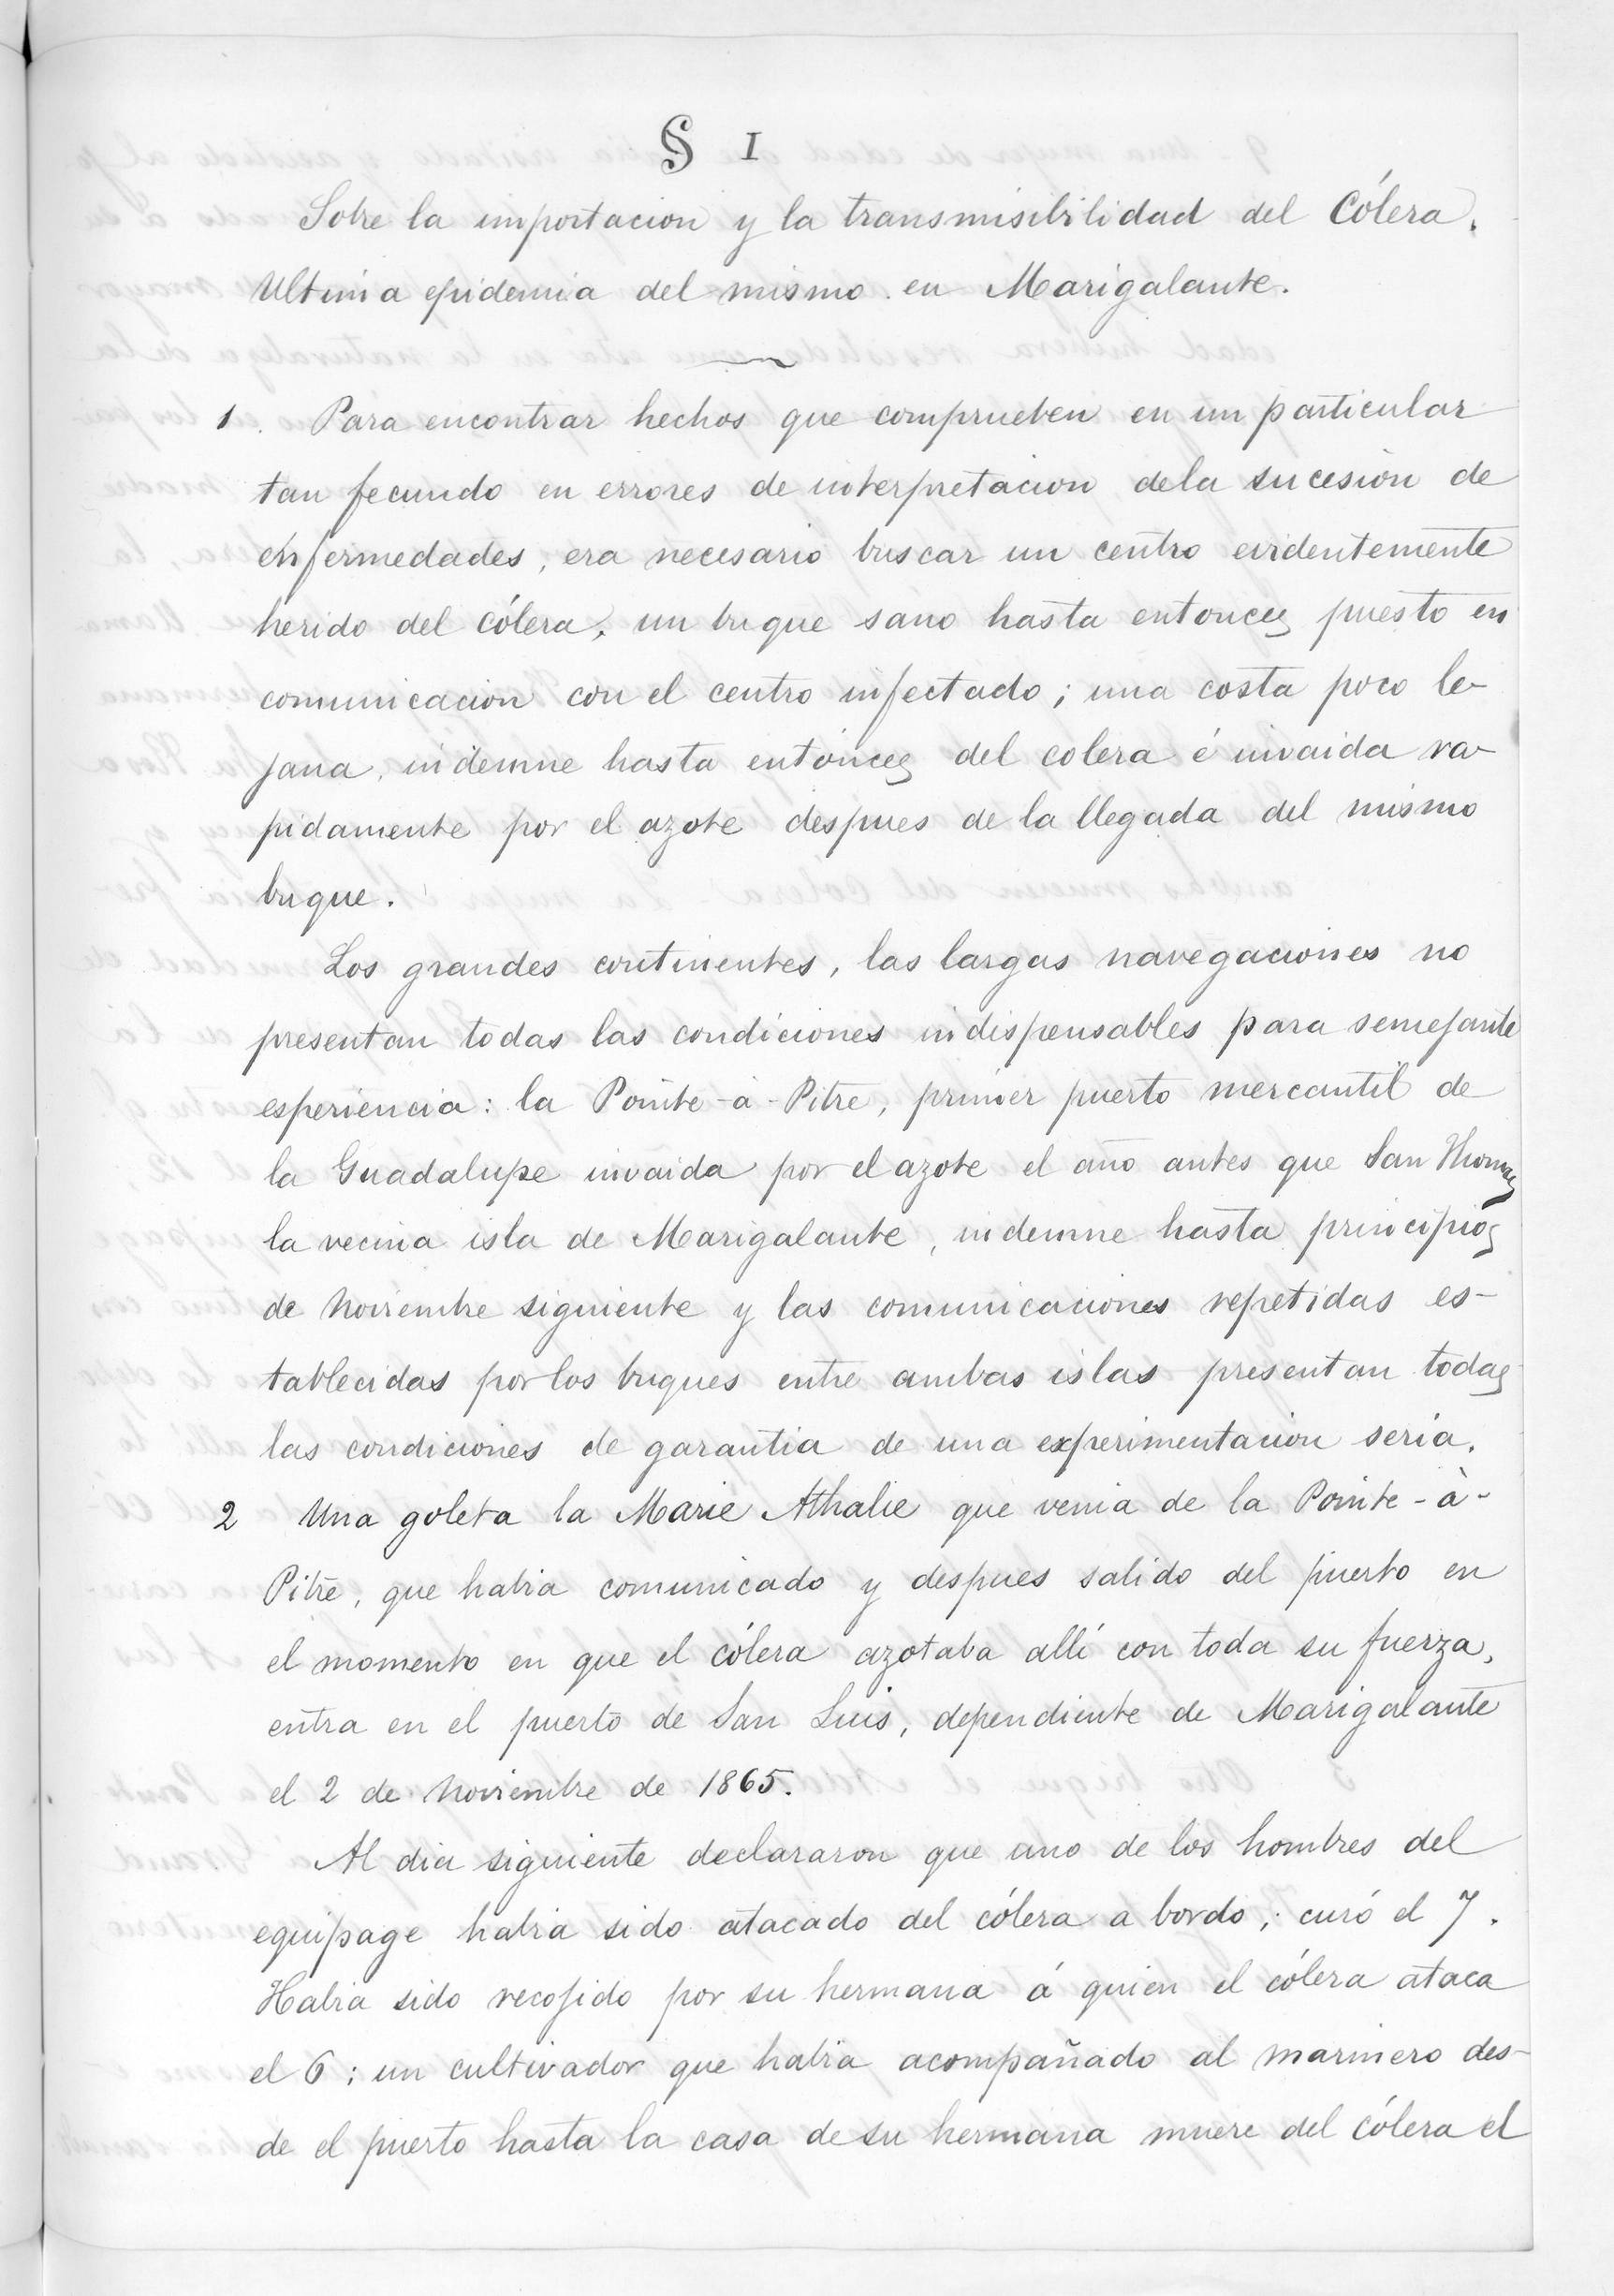 § I
Sobre la importacion y la transmisibilidad del Cólera.
Ultima epidemia del mismo en Marigalante.
1. Para encontrar hechos que comprueben en un particular
tan fecundo en errores de interpretacion dela sucesion de
enfermedades, era necesario buscar un centro evidentemente
herido del cólera, un buque sano hasta entonces puesto en
comunicacion con el centro infectado; una costa poco le-
jana, indemne hasta entónces del colera é invaida ra-
pidamente por el azote despues de la llegada del mismo
buque.
Los grandes continentes, las largas navegaciones no
presentan todas las condiciones indispensables para semejante
esperiencia: la Pointe-à-Pitre, primer puerto mercantil de
la Guadalupe invaida por el azote el año antes que San Thomas
la vecina isla de Marigalante, indemne hasta principios
de Noviembre siguiente y las comunicaciones repetidas es-
tablecidas por los buques entre ambas islas presentan todas
las condiciones de garantia de una experimentacion seria.
2 Una goleta la Marie Athalie que venia de la Pointe-à-
Pitre, que habia comunicado y despues salido del puerto en
el momento en que el cólera azotaba allí con toda su fuerza,
entra en el puerto de San Luis, dependiente de Marigalante
el 2 de Noviembre de 1865.
Al dia siguiente declararon que uno de los hombres del
equipage habia sido atacado del cólera a bordo; curó el 7.
Habia sido recojido por su hermana á quien el cólera ataca
el 6; un cultivador que habia acompañado al marinero des-
de el puerto hasta la casa de su hermana muere del cólera el